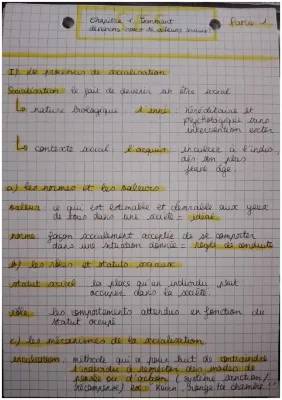 Chapitre 1, Comment
devenons-nous des acteurs sociaux?
Partie 1
I) Le processus de socialisation
Socialisation le fait de devenir un être social
nature biologique l'inné : héréditaire et
psychologique sans
intervention exter
contexte social l'acquis : inculqué à l'indiv,
dès son plus
jeune âge
a) les normes et les valeurs
valeur ce qui est estimable et désirable aux yeux
de tous dans une société = idéal
norme façon socialement acceptée de se comporter
dans une situation donnée = règle de conduite
b) les rôles et statuts sociaux
statut social la place qu'un individu peut
occuper dans la société
rôle les comportements attendus en fonction du
statut occupé
c) les mécanismes de la socialisation
inculcation méthode qui a pour but de contraindre
l'individu à
pensée ou d'action (système sanction/
récompense) ex: range ta chambre!